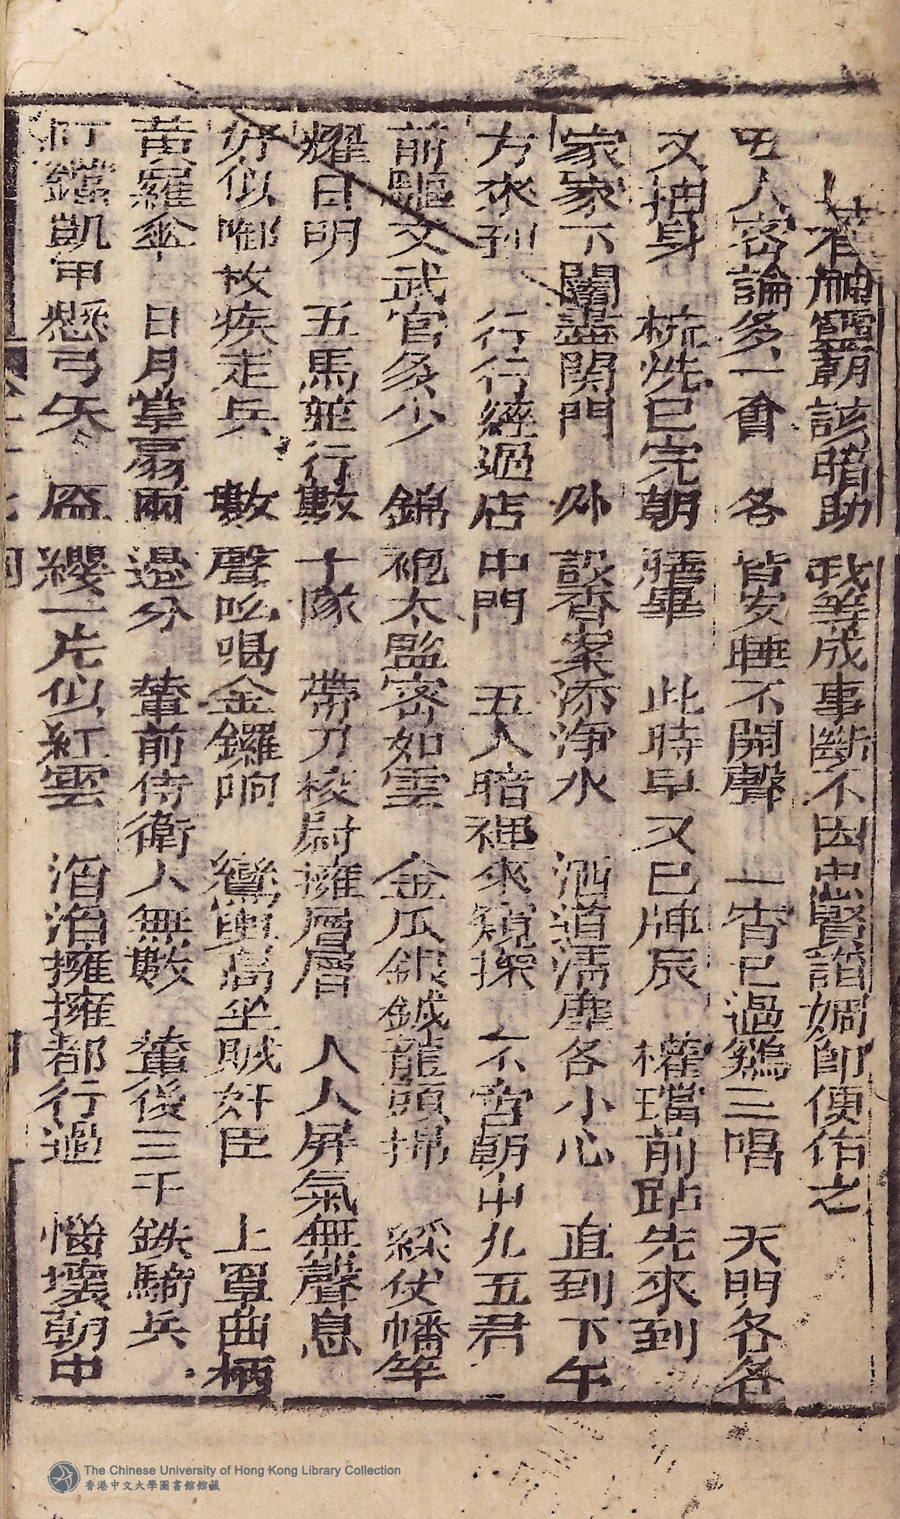 若有神靈覇該暗助 我等成事斷不因忠賢諧嫺即便作之
五人密論多一會 各皆安睡不開聲 一宵已過鷄三唱 天門各各
又抽身 梳洗已完朝膳畢 此時早又巳牌辰 權璫前站先來到
家家下闗盡関門 外設香案添淨水 洒道清塵各小心 直到下午
方來到 行行經過店中門 五人暗裡來窺探 不啻朝中九五君
前驅文武官多少 錦袍太監密如雲 金瓜銀鉞龍頭掃 綵仗幡竿
耀日明 五馬並行數十隊 帶刀校尉擁層層 人人屏氣無聲息
好似啣枚疾走兵 數聲吆喝金鑼响 鸞輿高坐賊奸臣 上罩曲柄
黃羅傘 日月掌扇兩邊分 輦前侍衛人無數 輦後三千鉄騎兵
釘鐺凱甲懸弓矢 盔纓一片似紅雲 滔滔擁擁都行過 惱壞朝中
The Chinese University of Hong Kong Library Collection
香港中文大學圖書館館藏